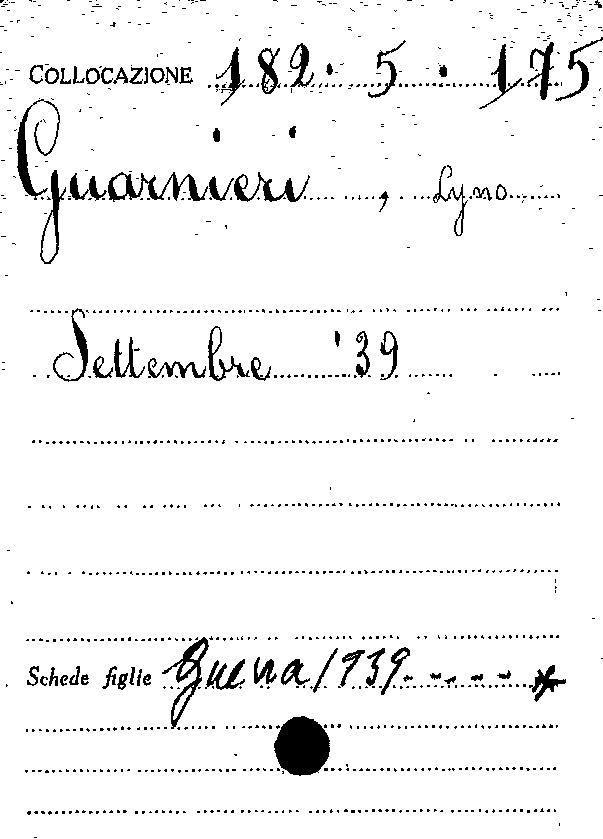 COLLOCAZIONE 182. 5. 175
Guarnieri, Lyno
Settembre '39
Schede figlie Guerra 1939-....*